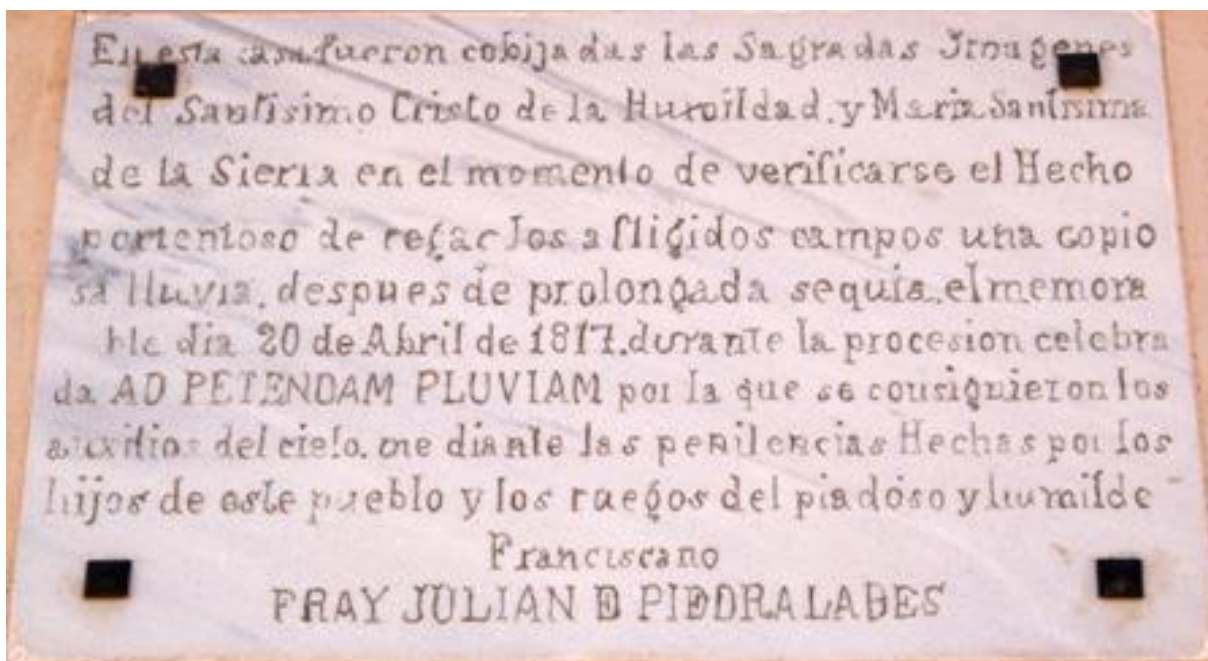 En esta casa fueron cobijadas las Sagradas Imagenes
del Santisimo Cristo de la Humildad y Maria Santisima
de la Sierra en el momento de verificarse el Hecho
portentoso de regar los afligidos campos una copio
sa lluvia, despues de prolongada sequia, el memora
ble dia 20 de Abril de 1817, durante la procesion celebra
da AD PETENDAM PLUVIAM por la que se consiguieron los
auxilios del cielo, mediante las penitencias Hechas por los
hijos de este pueblo y los ruegos del piadoso y humilde
Franciscano
FRAY JULIAN D PIEDRALABES